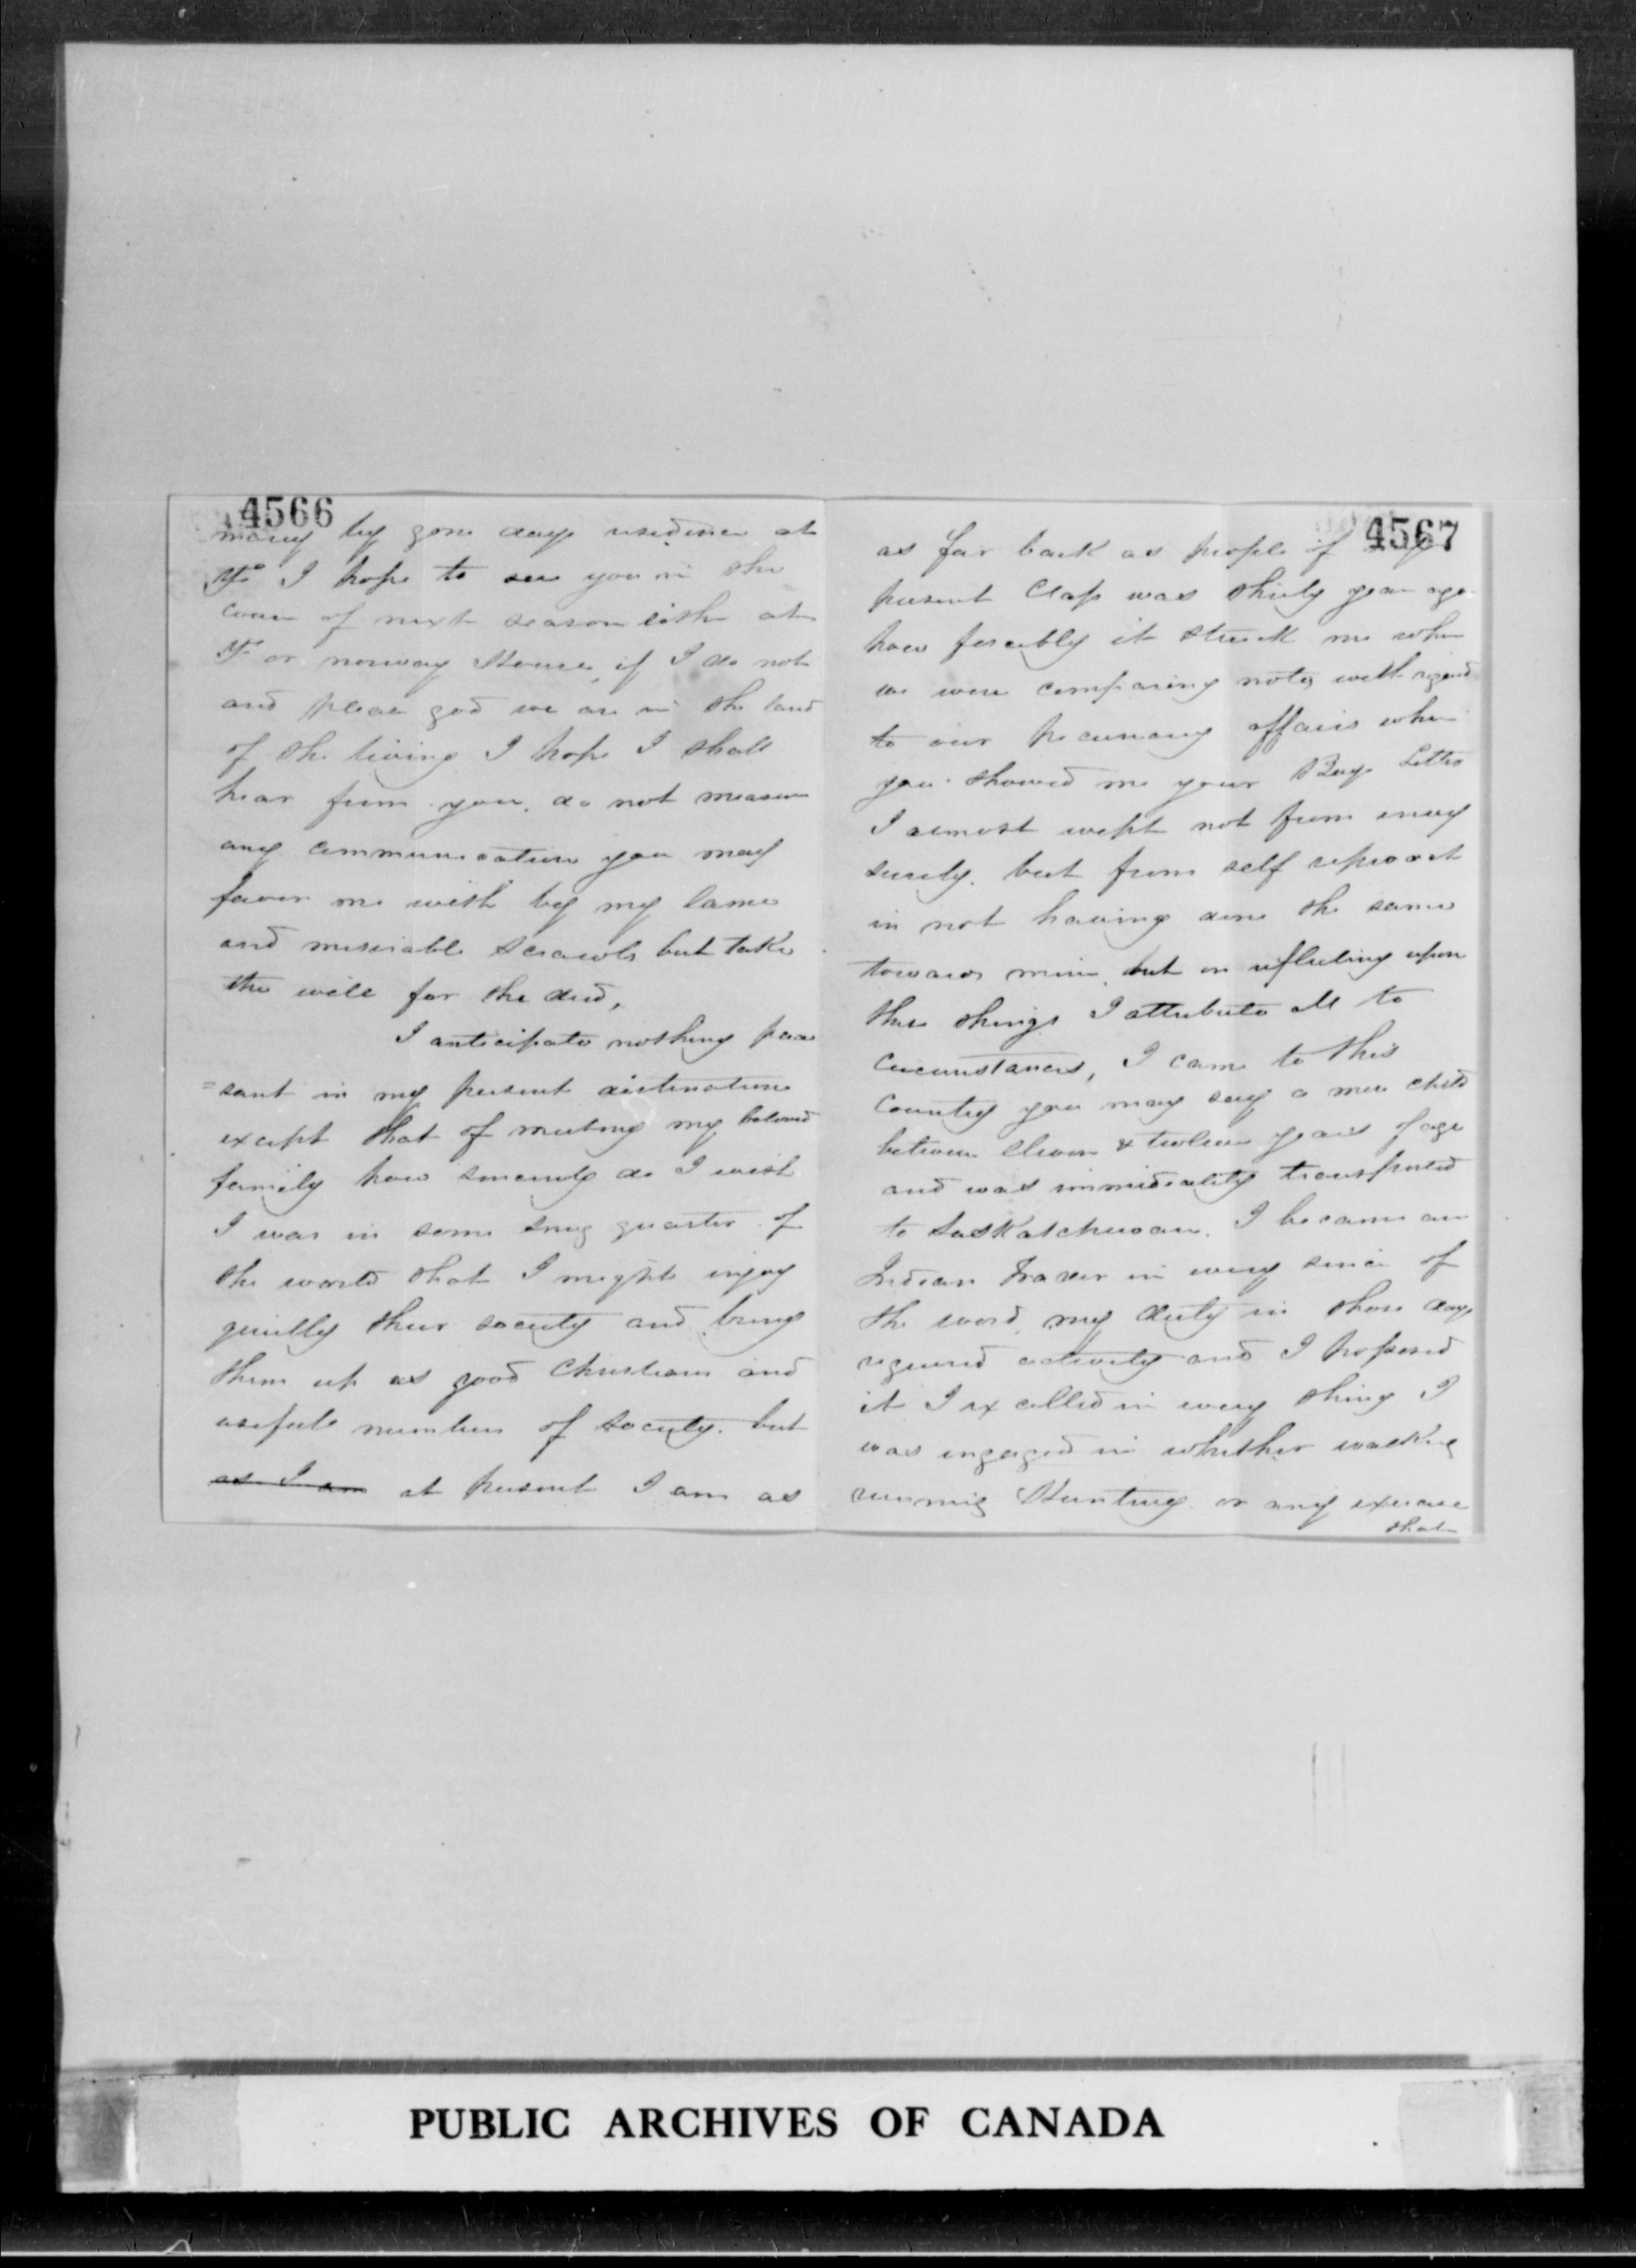 4566
many by gone days residence at
YF I hope to see you in the
course of next season either at
YF or norway House, if I do not
and please god we are in the land
of the living I hope I shall
hear from you. do not measure
any communication you may
favor me with by my lame
and miserable scrawls but take
the will for the deed,
I anticipate nothing plea
=sant in my present destination
except that of meeting my beloved
family how sincerely do I wish
I was in some snug quarter of
the world that I might enjoy
quietly their society and bring
them up as good Christians and
usefull members of society. but
as I am at present I am as
4567
as far back as people of my
present Class was thirty years ago
how forcibly it struck me when
we were comparing notes with regard
to our pecuniary affairs when
you showed me your Boys Letters
I almost wept not from envy
surely. but from self reproach
in not having done the same
towards mine, but on reflecting upon
these things I attribute all to
circumstances, I came to this
Country you may say a mere child
between eleven & twelve years of age
and was immideatly transported
to Saskatchewan. I became an
Indian Trader in every sence of
the word, my duty in those days
required activity and I possessed
it I excelled in every thing I
was engaged in whether walking
running Hunting or any exercise
that
PUBLIC ARCHIVES OF CANADA